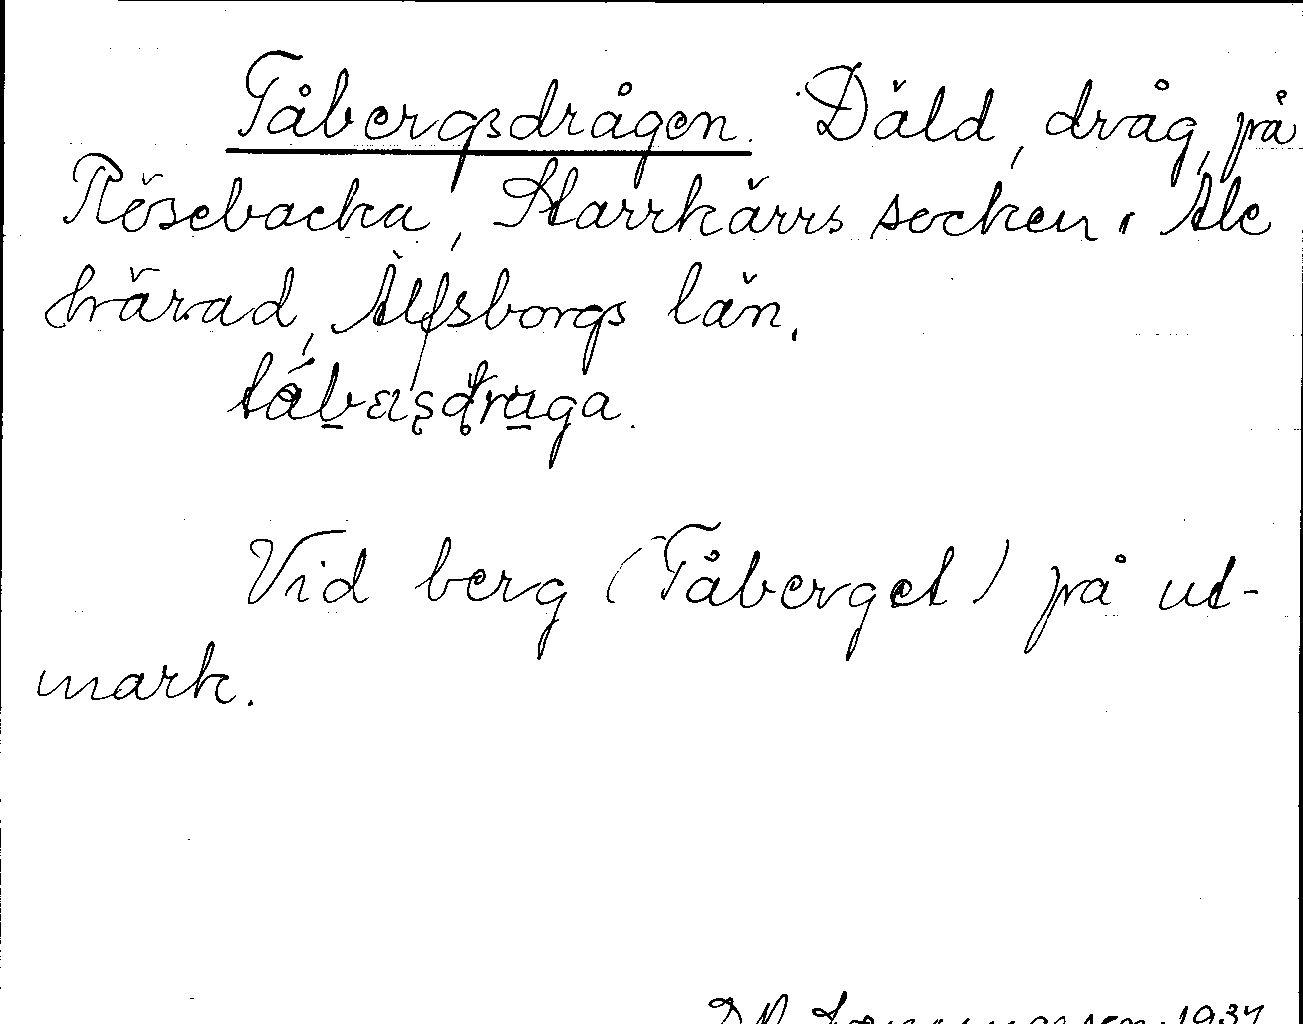 Tåbergsdrågen. Däld, dråg, på
Rösebacka, Starrkärrs socken, Ale
härad, Älfsborgs län.
Vid berg (Tåberget) på ut-
mark.
1934